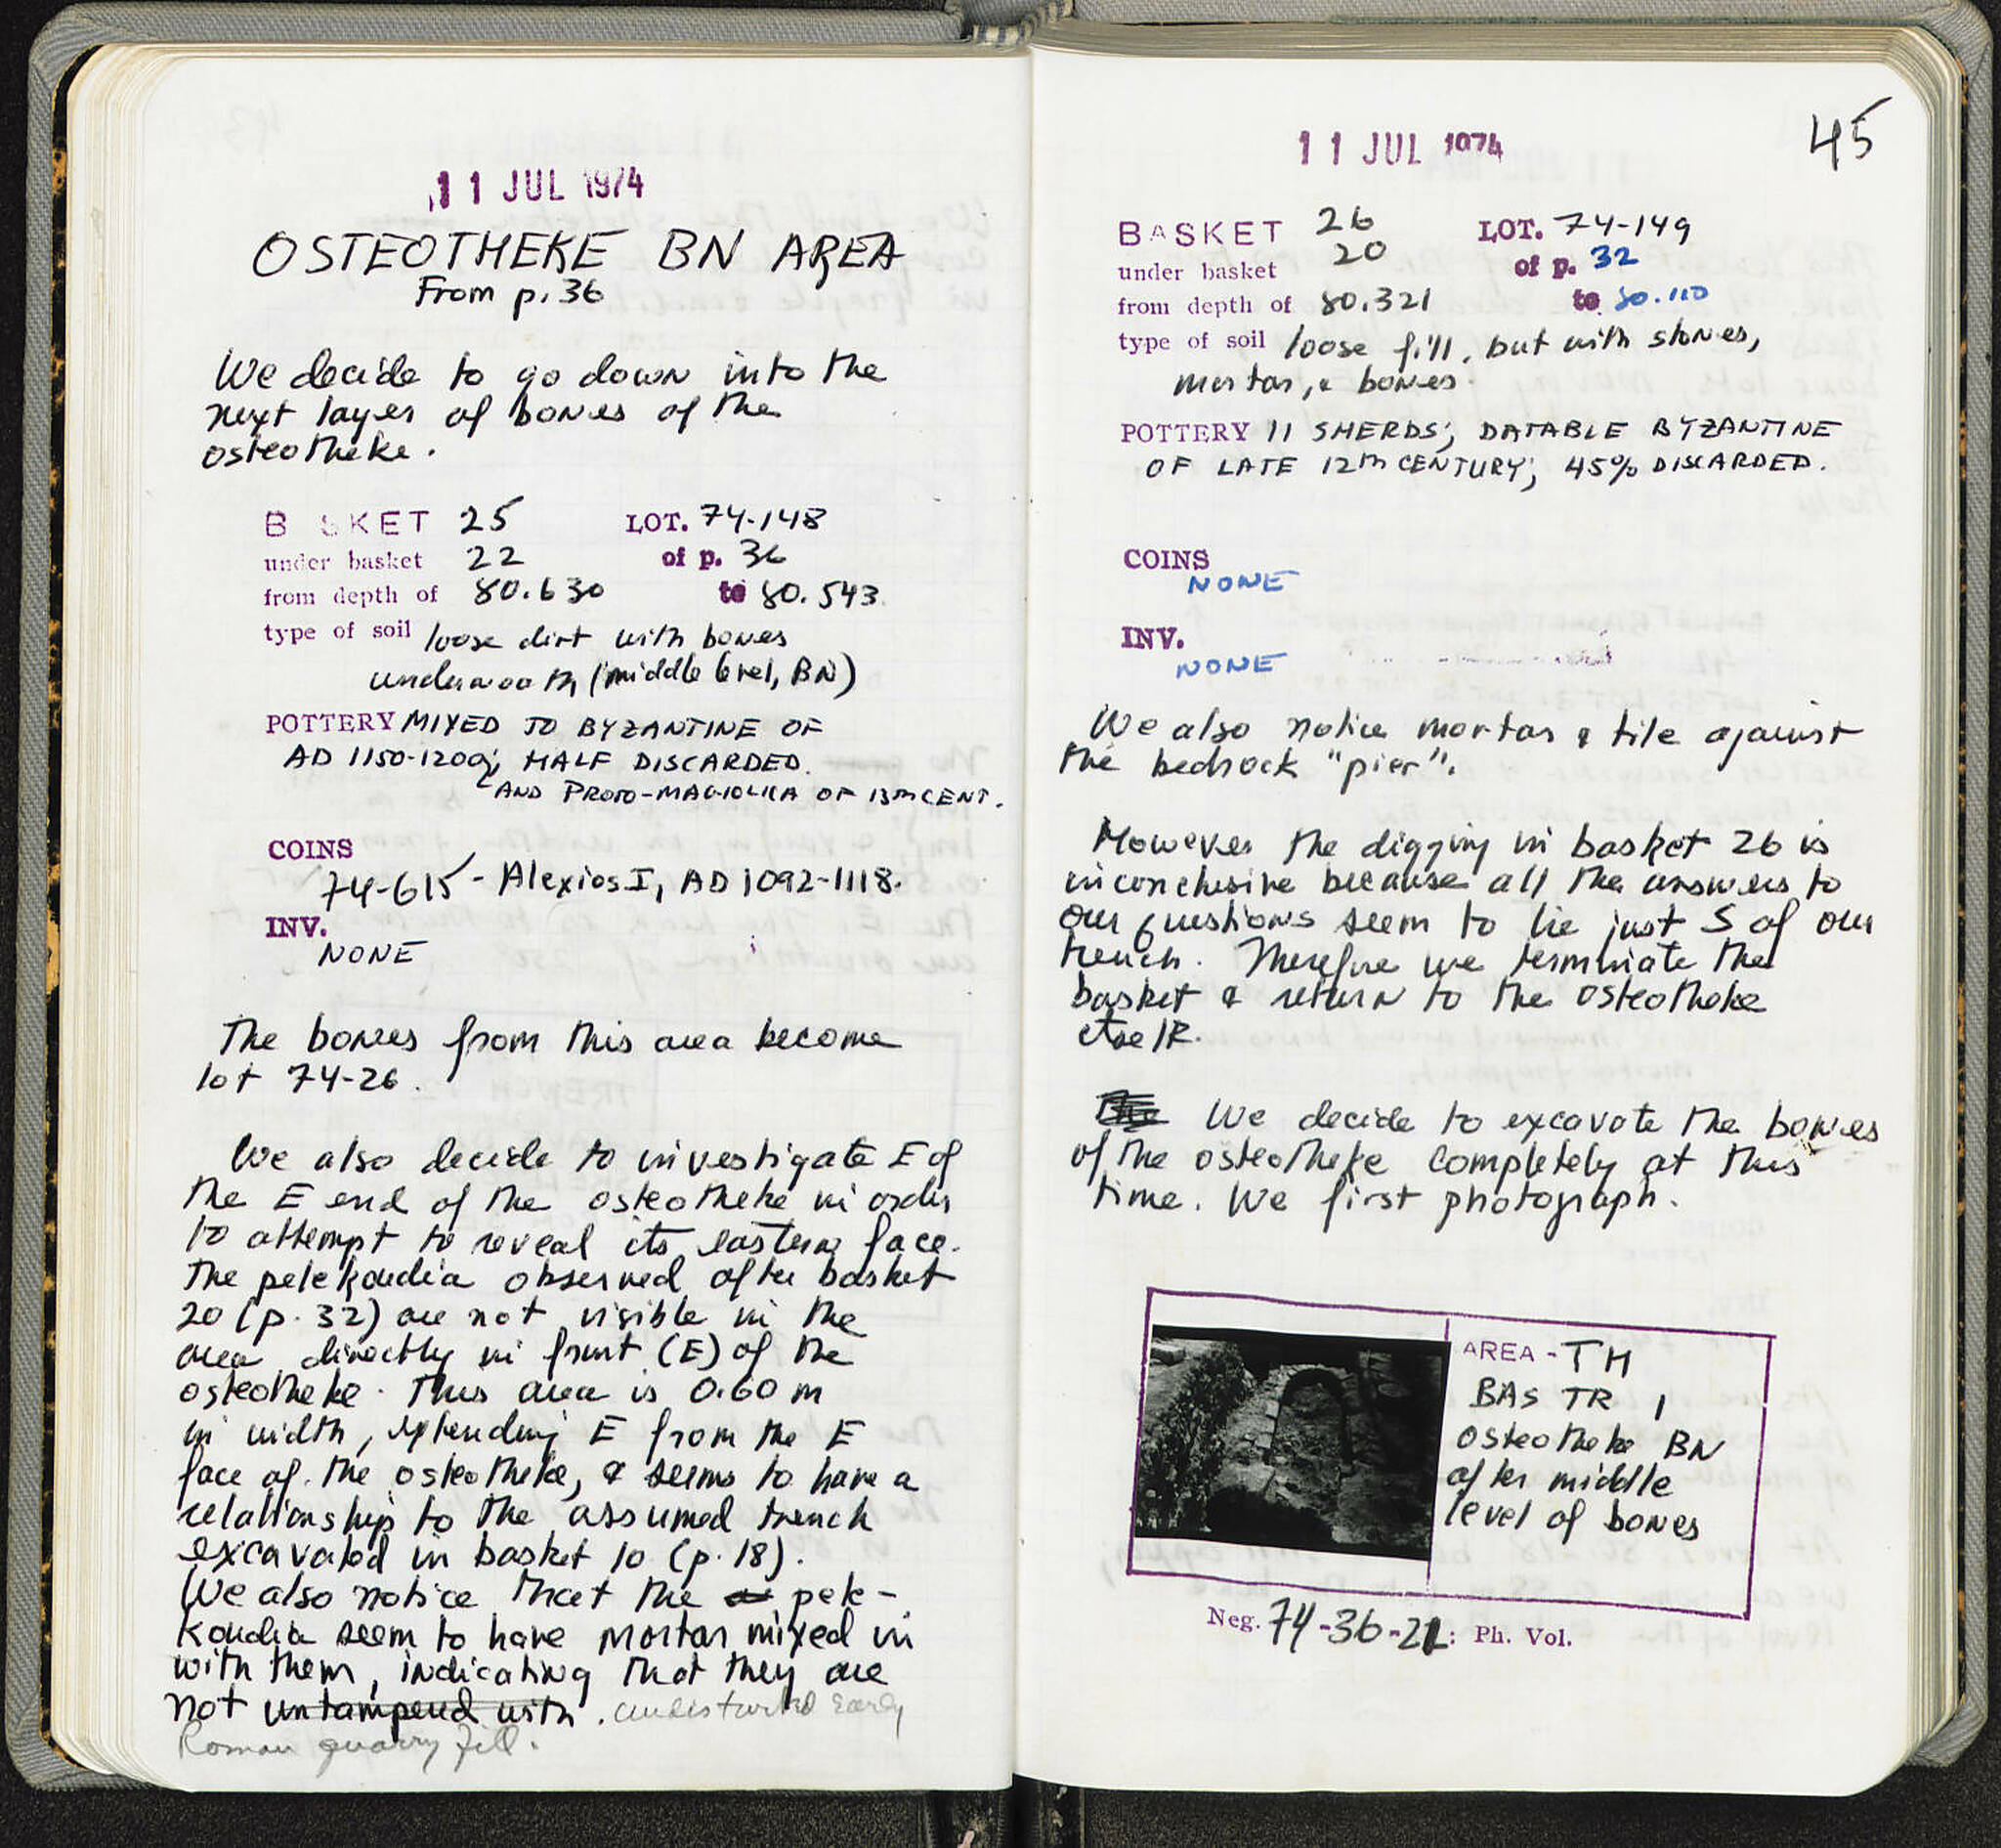 11 JUL 1974
OSTEOTHEKE BN AREA
From p. 36
We decide to go down into the
next layer of bones of the
osteotheke.
B SKET 25 LOT. 74-148
under basket 22 of p. 36
from depth of 80.630 to 80.543
type of soil loose dirt with bones
underneath (middle level, BN)
POTTERY MIXED TO BYZANTINE OF
AD 1150-1200; HALF DISCARDED.
AND PROTO-MAGIOLICA OF 13TH CENT.
COINS
74-615 - Alexios I, AD 1092-1118.
INV.
NONE
The bones from this area become
lot 74-26.
We also decide to investigate E of
the E end of the osteotheke in order
to attempt to reveal its eastern face.
The pelekoudia observed after basket
20 (p. 32) are not visible in the
area directly in front (E) of the
osteotheke. This area is 0.60 m
in width, extending E from the E
face of the osteotheke, & seems to have a
relationship to the assumed trench
excavated in basket 10 (p. 18).
We also notice that the pele-
koudia seem to have mortar mixed in
with them, indicating that they are
not untampered with. undisturbed Early
Roman quarry fill.
45
11 JUL 1974
BASKET 26 LOT. 74-149
under basket 20 of p. 32
from depth of 80.321 to 80.110
type of soil loose fill, but with stones,
mortar, & bones.
POTTERY 11 SHERDS; DATABLE BYZANTINE
OF LATE 12TH CENTURY; 45% DISCARDED.
COINS
NONE
INV.
NONE
We also notice mortar & tile against
the bedrock "pier".
However the digging in basket 26 is
inconclusive because all the answers to
our questions seem to lie just S of our
trench. Therefore we terminate the
basket & return to the osteotheke
itself.
We decide to excavate the bones
of the osteotheke completely at this
time. We first photograph.
AREA - TH
BAS TR 1
Osteotheke BN
after middle
level of bones
Neg. 74-36-21: Ph. Vol.